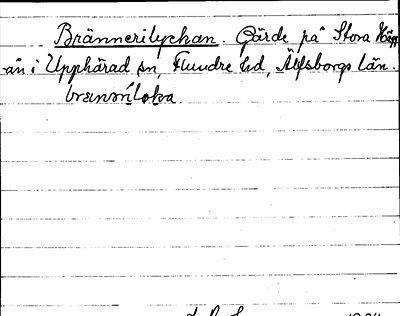 Brännerilyckan. Gärde på Stora Hägg-
ån i Upphärad sn, Flundre hd, Älfsborgs län.